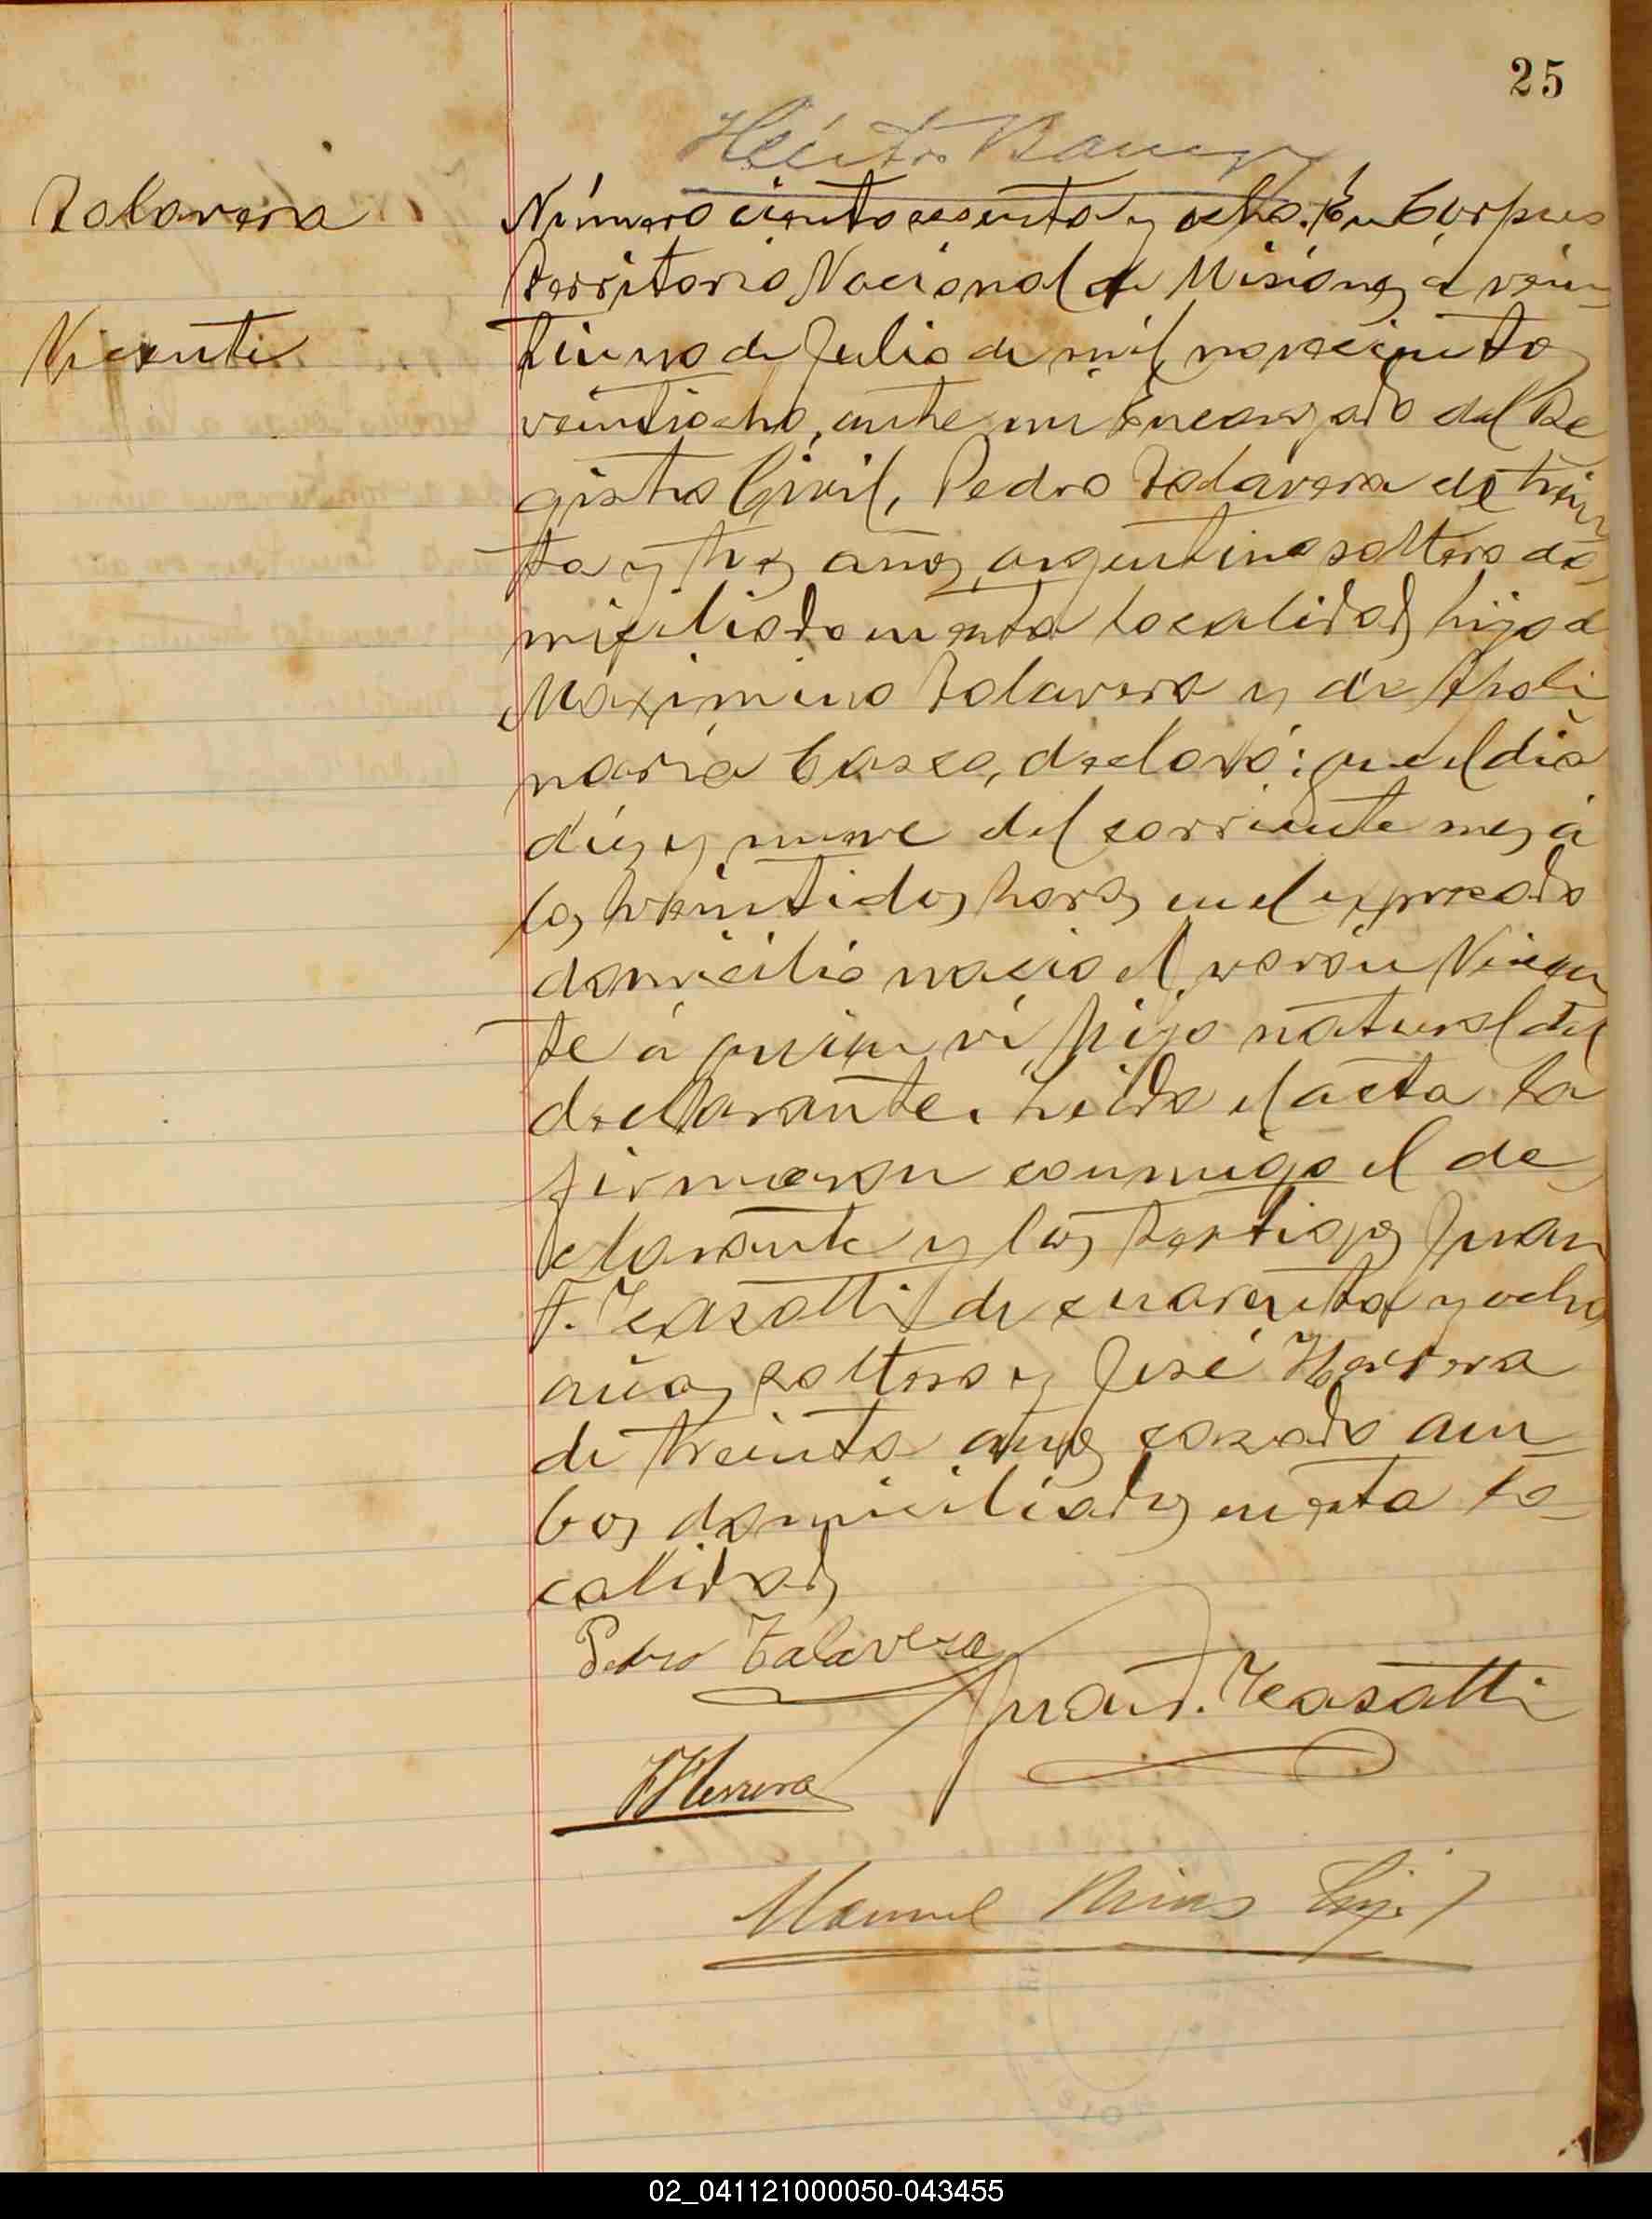 25
Héctor
Talavera
Vicente
Número ciento sesenta y ocho. En Corpus
Territorio Nacional de Misiones a vein-
tiuno de Julio de mil novecientos
veintiocho, ante mi Encargado del Re
gistro Civil, Pedro Talavera de trein
ta y tres años, argentino soltero do
miciliado en esta localidad hijo de
Maximino Talavera y de Apoli
naria, declaró: que el dia
diez y nueve del corriente mes á
las veintidos horas en el expresado
domicilio nacio el varón Vicen
te á quien vi hijo natural del
declarante. Leida el acta la
firmaron conmigo el de
clarante y los testigos Juan
F. Casatti de cuarenta y ocho
años soltero y José Herrera
de treinta años casado am-
bos domiciliados en esta lo-
calidad
Pedro Talavera
Juan F. Casatti
J Herrera
Manuel
02_041121000050-043455